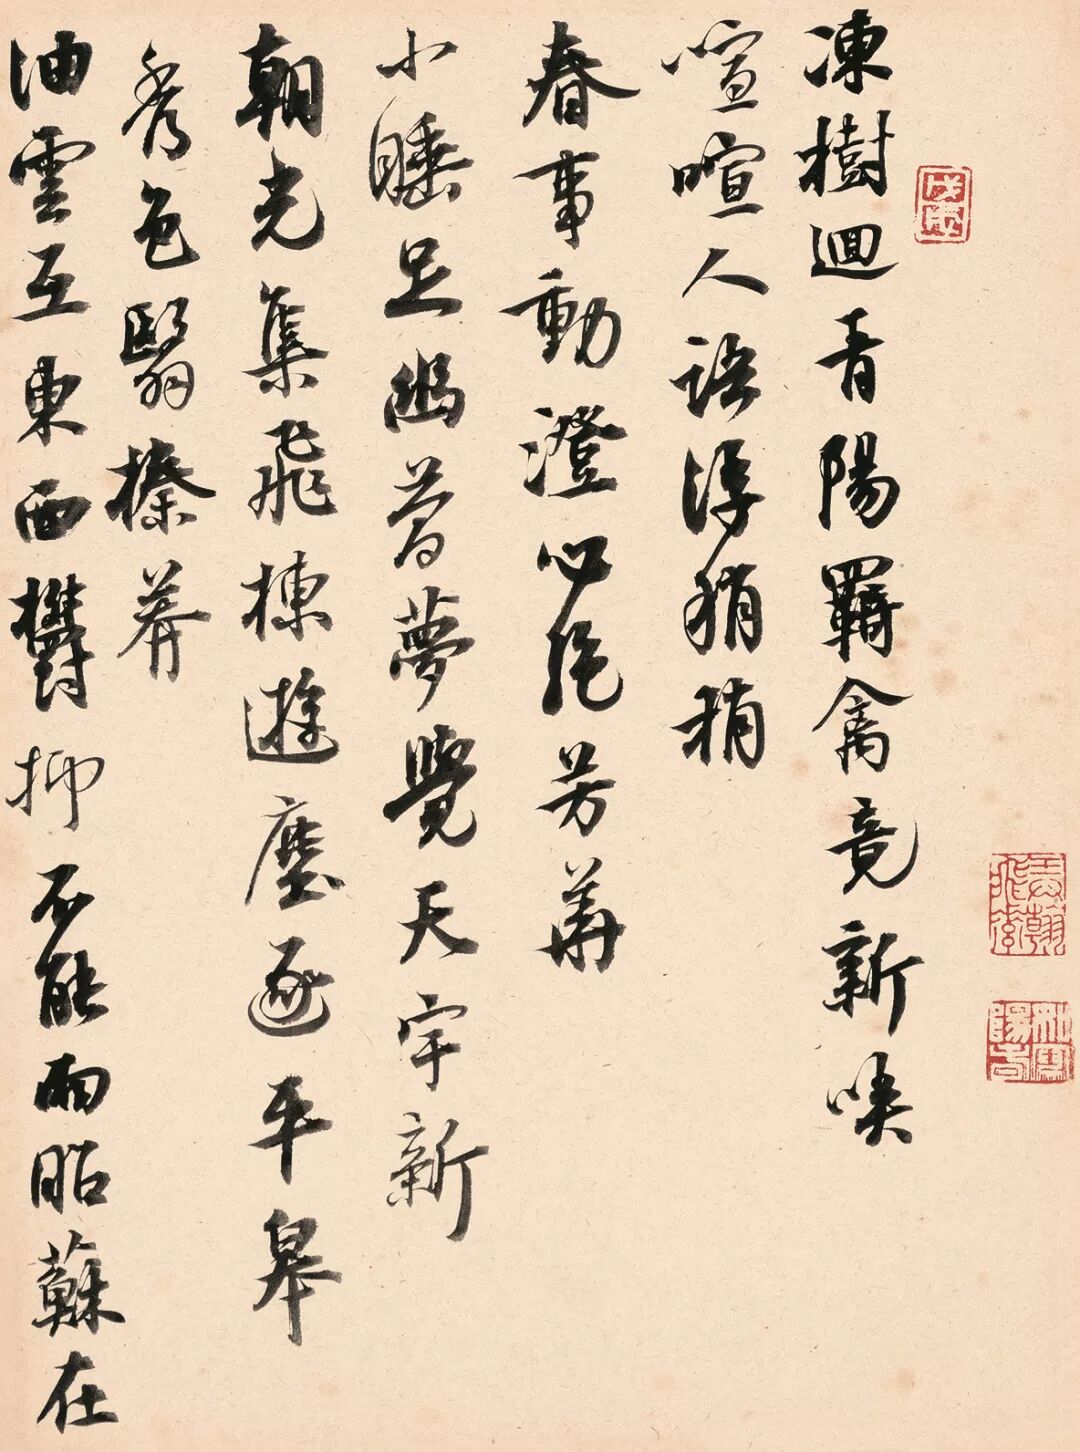 凍樹迴青陽羈禽竟新
喧喧人語浮稍稍
春事動澄心絶芳華
小睡足幽昔夢覺天宇新
朝光集飛棟遊塵逐平皋
秀色翳榛莽
油雲互東西欝抑不能雨昭蘇在